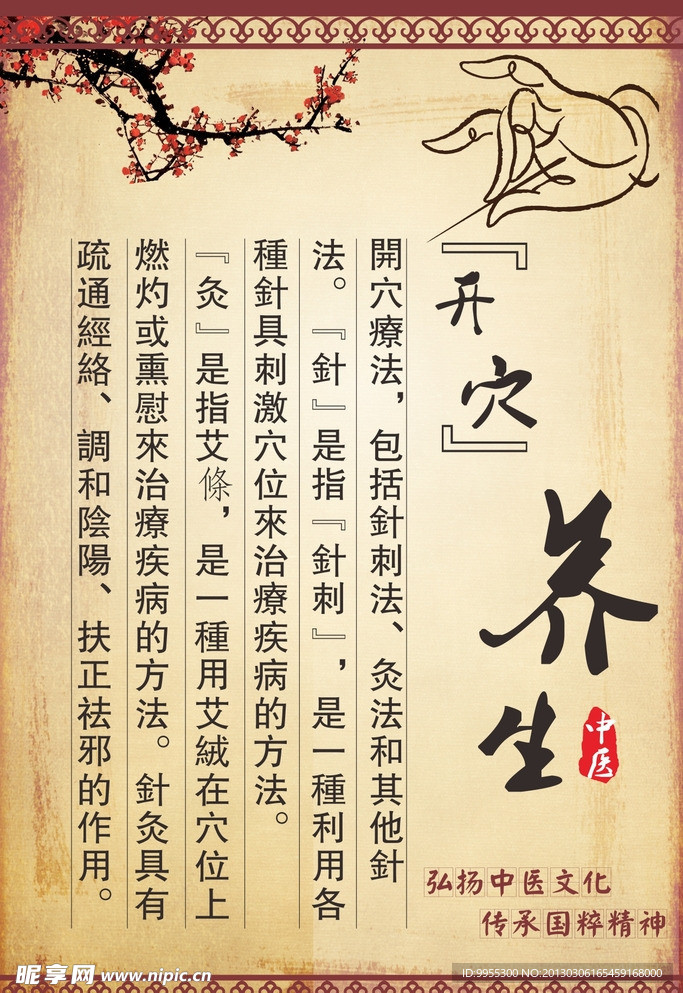 『开穴』
养生
中医
開穴療法，包括針刺法、灸法和其他針
法。『針』是指『針刺』，是一種利用各
種針具刺激穴位來治療疾病的方法。
『灸』是指艾條，是一種用艾絨在穴位上
燃灼或熏慰來治療疾病的方法。針灸具有
疏通經絡、調和陰陽、扶正祛邪的作用。
弘扬中医文化
传承国粹精神
昵享网 www.nipic.cn
ID:9955300 NO:20130306165459168000